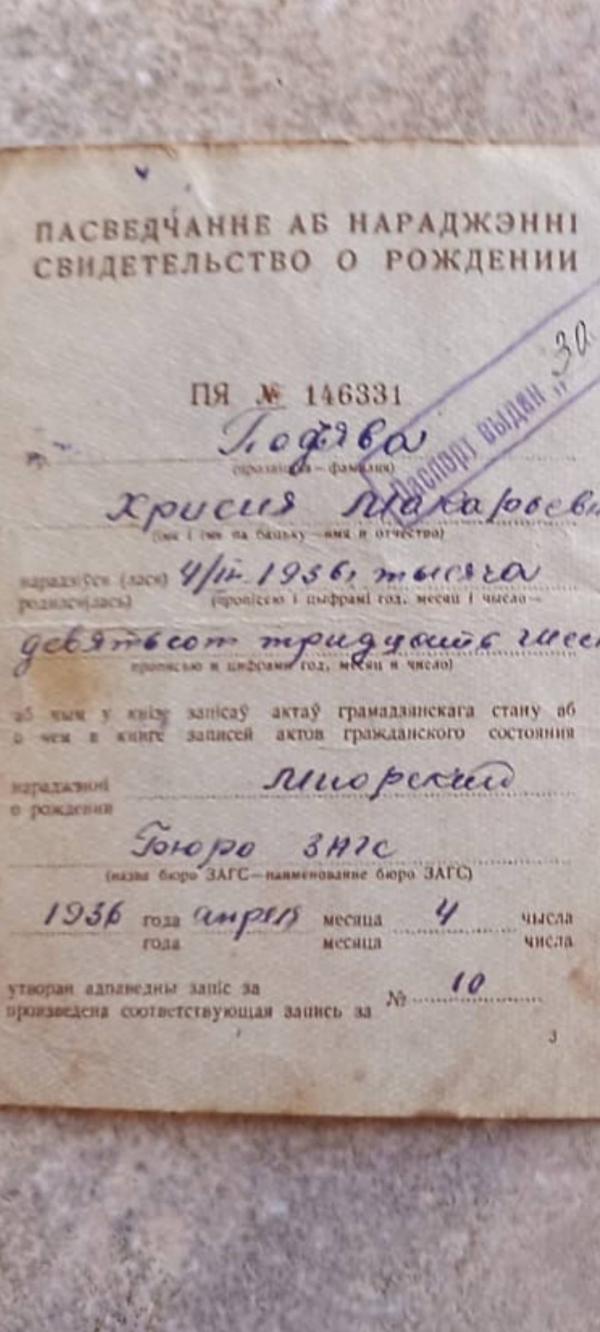 ПАСВЕДЧАННЕ АБ НАРАДЖЭННІ
СВИДЕТЕЛЬСТВО О РОЖДЕНИИ
ПЯ № 146331
Паспорт выдан „30
гр.
(прозвішча—фамилия)
Хрисия Макарьевн
(імя і імя па бацьку—имя и отчество)
нарадзіўся (лася) 4/IV 1936, тысяча
родился(лась) (пропіссю і цыфрамі год, месяц і число—
девятьсот тридцать шест
прописью и цифрами год, месяц и число)
аб чым у кнізе запісаў актаў грамадзянскага стану аб
о чем в книге записей актов гражданского состояния
нараджэнні Миорский
о рождении
Бюро ЗАГС
(назва бюро ЗАГС—наименование бюро ЗАГС)
1936 года апреля месяца 4 чысла
года месяца числа
утворан адпаведны запіс за
произведена соответствующая запись за № 10
3